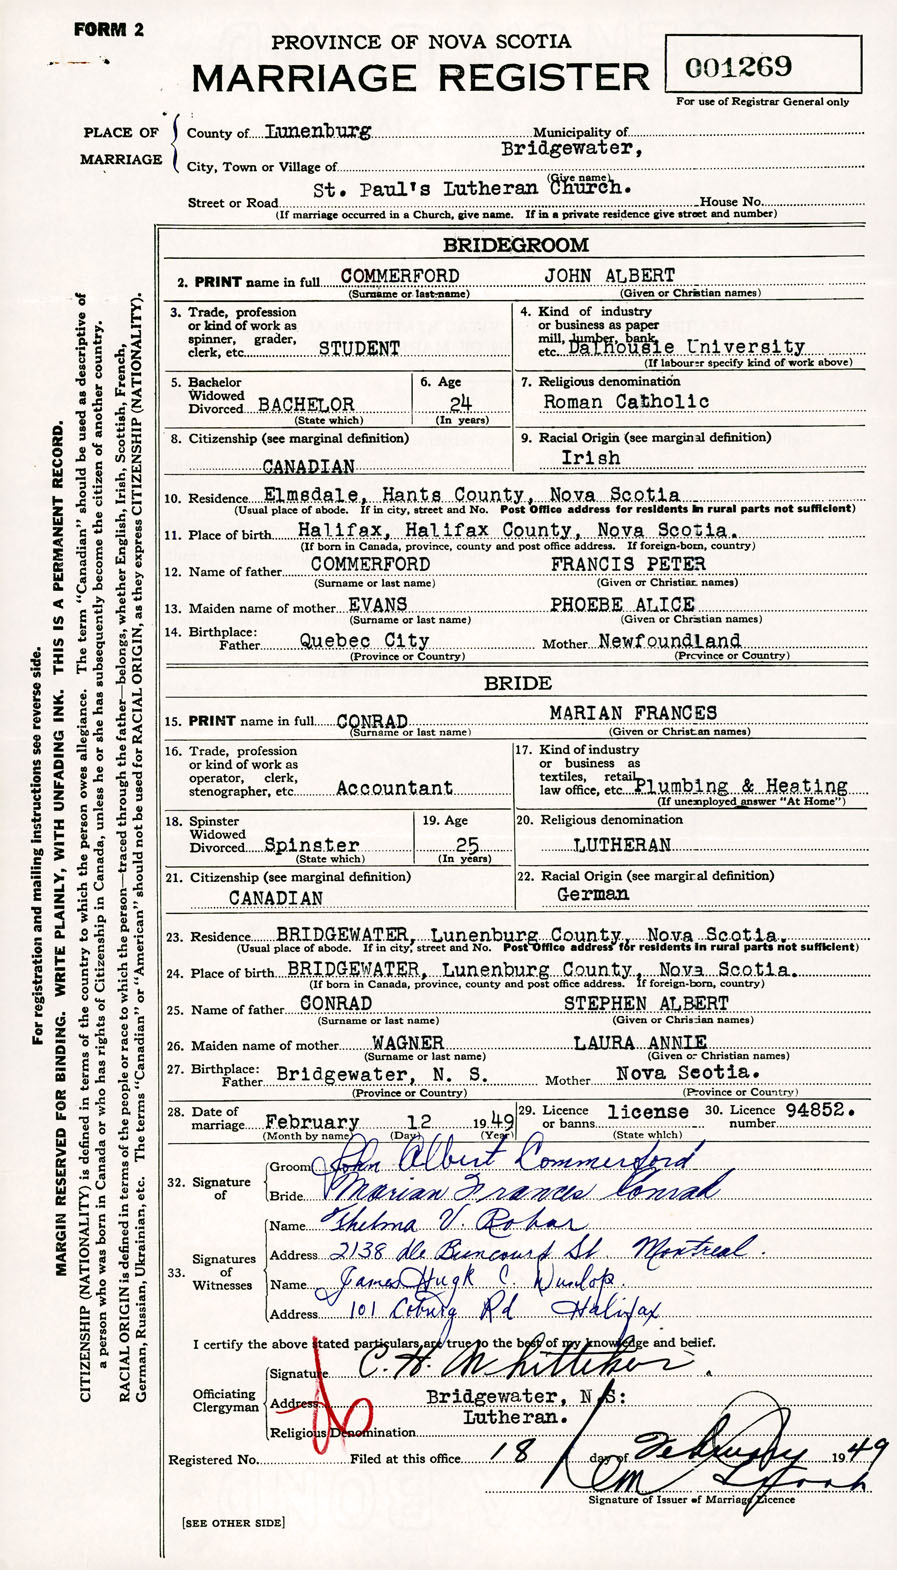 FORM 2
PROVINCE OF NOVA SCOTIA
MARRIAGE REGISTER
001269
For use of Registrar General only
PLACE OF MARRIAGE
County of Lunenburg Municipality of
City, Town or Village of Bridgewater,
(Give name)
Street or Road St. Paul's Lutheran Church. House No.
(If marriage occurred in a Church, give name. If in a private residence give street and number)
BRIDEGROOM
2. PRINT name in full COMMERFORD JOHN ALBERT
(Surname or last name) (Given or Christian names)
3. Trade, profession or kind of work as spinner, grader, clerk, etc. STUDENT
4. Kind of industry or business as paper mill, lumber, bank, etc. Dalhousie University
(If labourer specify kind of work above)
5. Bachelor Widowed Divorced BACHELOR
(State which)
6. Age 24
(In years)
7. Religious denomination
Roman Catholic
8. Citizenship (see marginal definition)
CANADIAN
9. Racial Origin (see marginal definition)
Irish
10. Residence Elmsdale, Hants County, Nova Scotia
(Usual place of abode. If in city, street and No. Post Office address for residents in rural parts not sufficient)
11. Place of birth Halifax, Halifax County, Nova Scotia.
(If born in Canada, province, county and post office address. If foreign-born, country)
12. Name of father COMMERFORD FRANCIS PETER
(Surname or last name) (Given or Christian names)
13. Maiden name of mother EVANS PHOEBE ALICE
(Surname or last name) (Given or Christian names)
14. Birthplace: Father Quebec City Mother Newfoundland
(Province or Country) (Province or Country)
BRIDE
15. PRINT name in full CONRAD MARIAN FRANCES
(Surname or last name) (Given or Christian names)
16. Trade, profession or kind of work as operator, clerk, stenographer, etc. Accountant
17. Kind of industry or business as textiles, retail, law office, etc. Plumbing & Heating
(If unemployed answer "At Home")
18. Spinster Widowed Divorced Spinster
(State which)
19. Age 25
(In years)
20. Religious denomination
LUTHERAN
21. Citizenship (see marginal definition)
CANADIAN
22. Racial Origin (see marginal definition)
German
23. Residence BRIDGEWATER, Lunenburg County, Nova Scotia.
(Usual place of abode. If in city, street and No. Post Office address for residents in rural parts not sufficient)
24. Place of birth BRIDGEWATER, Lunenburg County, Nova Scotia.
(If born in Canada, province, county and post office address. If foreign-born, country)
25. Name of father CONRAD STEPHEN ALBERT
(Surname or last name) (Given or Christian names)
26. Maiden name of mother WAGNER LAURA ANNIE
(Surname or last name) (Given or Christian names)
27. Birthplace: Father Bridgewater, N. S. Mother Nova Scotia.
(Province or Country) (Province or Country)
28. Date of marriage February 12 1949
(Month by name) (Day) (Year)
29. Licence or banns license
(State which)
30. Licence number 94852.
32. Signature of
Groom John Albert Commerford
Bride Marian Frances Conrad
33. Signatures of Witnesses
Name Thelma V. Rohar
Address 2138 de Biencourt St. Montreal.
Name James Hugh C. Dunlop.
Address 101 Coburg Rd Halifax
I certify the above stated particulars are true to the best of my knowledge and belief.
Officiating Clergyman
Signature C. H. Whitteker.
Address Bridgewater, N.S:
Religious Denomination Lutheran.
Registered No. Filed at this office 18 day of February 1949
Signature of Issuer of Marriage Licence
[SEE OTHER SIDE]
For registration and mailing instructions see reverse side.
MARGIN RESERVED FOR BINDING. WRITE PLAINLY, WITH UNFADING INK. THIS IS A PERMANENT RECORD.
CITIZENSHIP (NATIONALITY) is defined in terms of the country to which the person owes allegiance. The term "Canadian" should be used as descriptive of
a person who was born in Canada or who has rights of Citizenship in Canada, unless he or she has subsequently become the citizen of another country.
RACIAL ORIGIN is defined in terms of the people or race to which the person—traced through the father—belongs, whether English, Irish, Scottish, French,
German, Russian, Ukrainian, etc. The terms "Canadian" or "American" should not be used for RACIAL ORIGIN, as they express CITIZENSHIP (NATIONALITY).